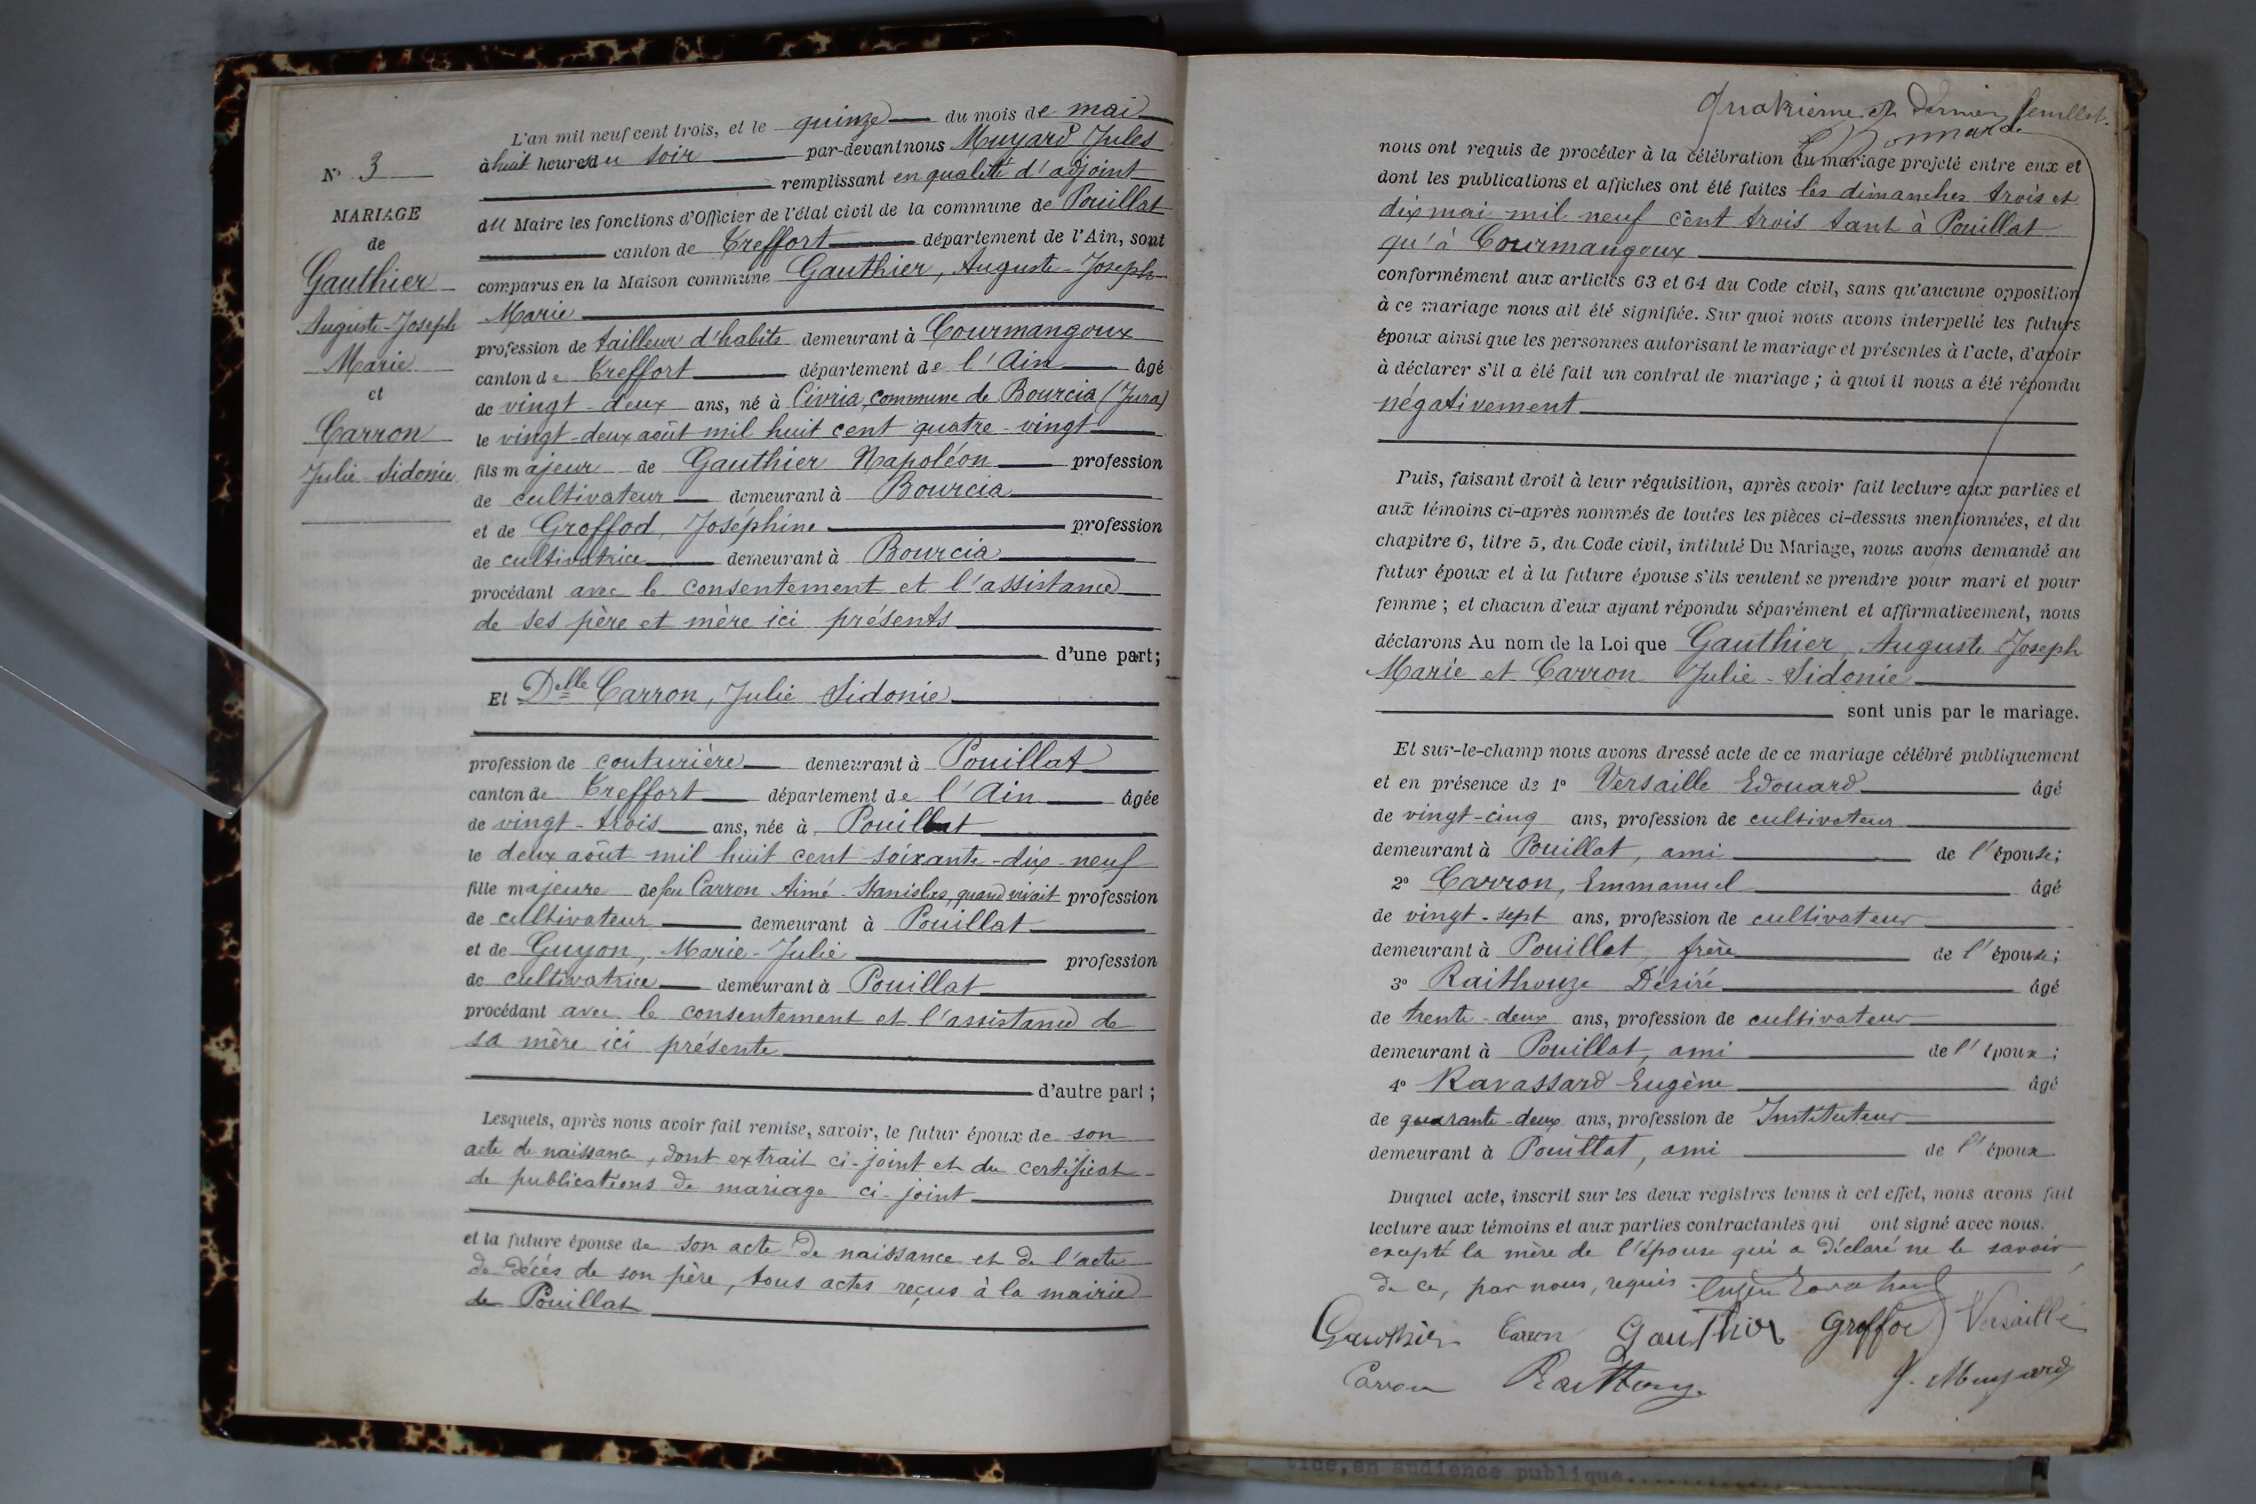 N° 3
MARIAGE
de
Gauthier
Auguste-Joseph
Marie
et
Carron
Julie Sidonie
L'an mil neuf cent trois, et le quinze du mois de mai
à huit heures du soir par-devant nous Muyard Jules
remplissant en qualité d'adjoint
du Maire les fonctions d'Officier de l'état civil de la commune de Pouillat
canton de Treffort département de l'Ain, sont
comparus en la Maison commune Gauthier, Auguste-Joseph
Marie
profession de tailleur d'habits demeurant à Courmangoux
canton de Treffort département de l'Ain âgé
de vingt-deux ans, né à Civria, commune de Bourcia (Jura)
le vingt-deux août mil huit cent quatre-vingt
fils majeur de Gauthier Napoléon profession
de cultivateur demeurant à Bourcia
et de Groffod, Joséphine profession
de cultivatrice demeurant à Bourcia
procédant avec le consentement et l'assistance
de ses père et mère ici présents
d'une part;
Et Delle Carron, Julie Sidonie
profession de couturière demeurant à Pouillat
canton de Treffort département de l'Ain âgée
de vingt-trois ans, née à Pouillat
le deux août mil huit cent soixante-dix-neuf
fille majeure de feu Carron Aimé-Stanislas, quand vivait profession
de cultivateur demeurant à Pouillat
et de Guyon, Marie-Julie profession
de cultivatrice demeurant à Pouillat
procédant avec le consentement et l'assistance de
sa mère ici présente
d'autre part;
Lesquels, après nous avoir fait remise, savoir, le futur époux de son
acte de naissance, dont extrait ci-joint et du certificat
de publications de mariage ci-joint
et la future épouse de son acte de naissance et de l'acte
de décés de son père, tous actes reçus à la mairie
de Pouillat
Quatrième et dernier feuillet.
Bonnard
nous ont requis de procéder à la célébration du mariage projeté entre eux et
dont les publications et affiches ont été faites les dimanches trois et
dix mai mil neuf cent trois tant à Pouillat
qu'à Courmangoux
conformément aux articles 63 et 64 du Code civil, sans qu'aucune opposition
à ce mariage nous ait été signifiée. Sur quoi nous avons interpellé les futurs
époux ainsi que les personnes autorisant le mariage et présentes à l'acte, d'avoir
à déclarer s'il a été fait un contrat de mariage; à quoi il nous a été répondu
négativement
Puis, faisant droit à leur réquisition, après avoir fait lecture aux parties et
aux témoins ci-après nommés de toutes les pièces ci-dessus mentionnées, et du
chapitre 6, titre 5, du Code civil, intitulé Du Mariage, nous avons demandé au
futur époux et à la future épouse s'ils veulent se prendre pour mari et pour
femme; et chacun d'eux ayant répondu séparément et affirmativement, nous
déclarons Au nom de la Loi que Gauthier, Auguste Joseph
Marie et Carron Julie-Sidonie
sont unis par le mariage.
Et sur-le-champ nous avons dressé acte de ce mariage célébré publiquement
et en présence de 1° Versaille Edouard âgé
de vingt-cinq ans, profession de cultivateur
demeurant à Pouillat, ami de l'épouse;
2° Carron, Emmanuel âgé
de vingt-sept ans, profession de cultivateur
demeurant à Pouillat, frère de l'épouse;
3° Raithouze Désiré âgé
de trente-deux ans, profession de cultivateur
demeurant à Pouillat, ami de l'époux;
4° Ravassard Eugène âgé
de quarante-deux ans, profession de Instituteur
demeurant à Pouillat, ami de l'époux
Duquel acte, inscrit sur les deux registres tenus à cet effet, nous avons fait
lecture aux témoins et aux parties contractantes qui ont signé avec nous.
excepté la mère de l'épouse qui a déclaré ne le savoir
de ce, par nous, requis.
Gauthier Carron Gauthier Groffod Versaille
Carron Raithouze J. Muyard
tice, en audience publique